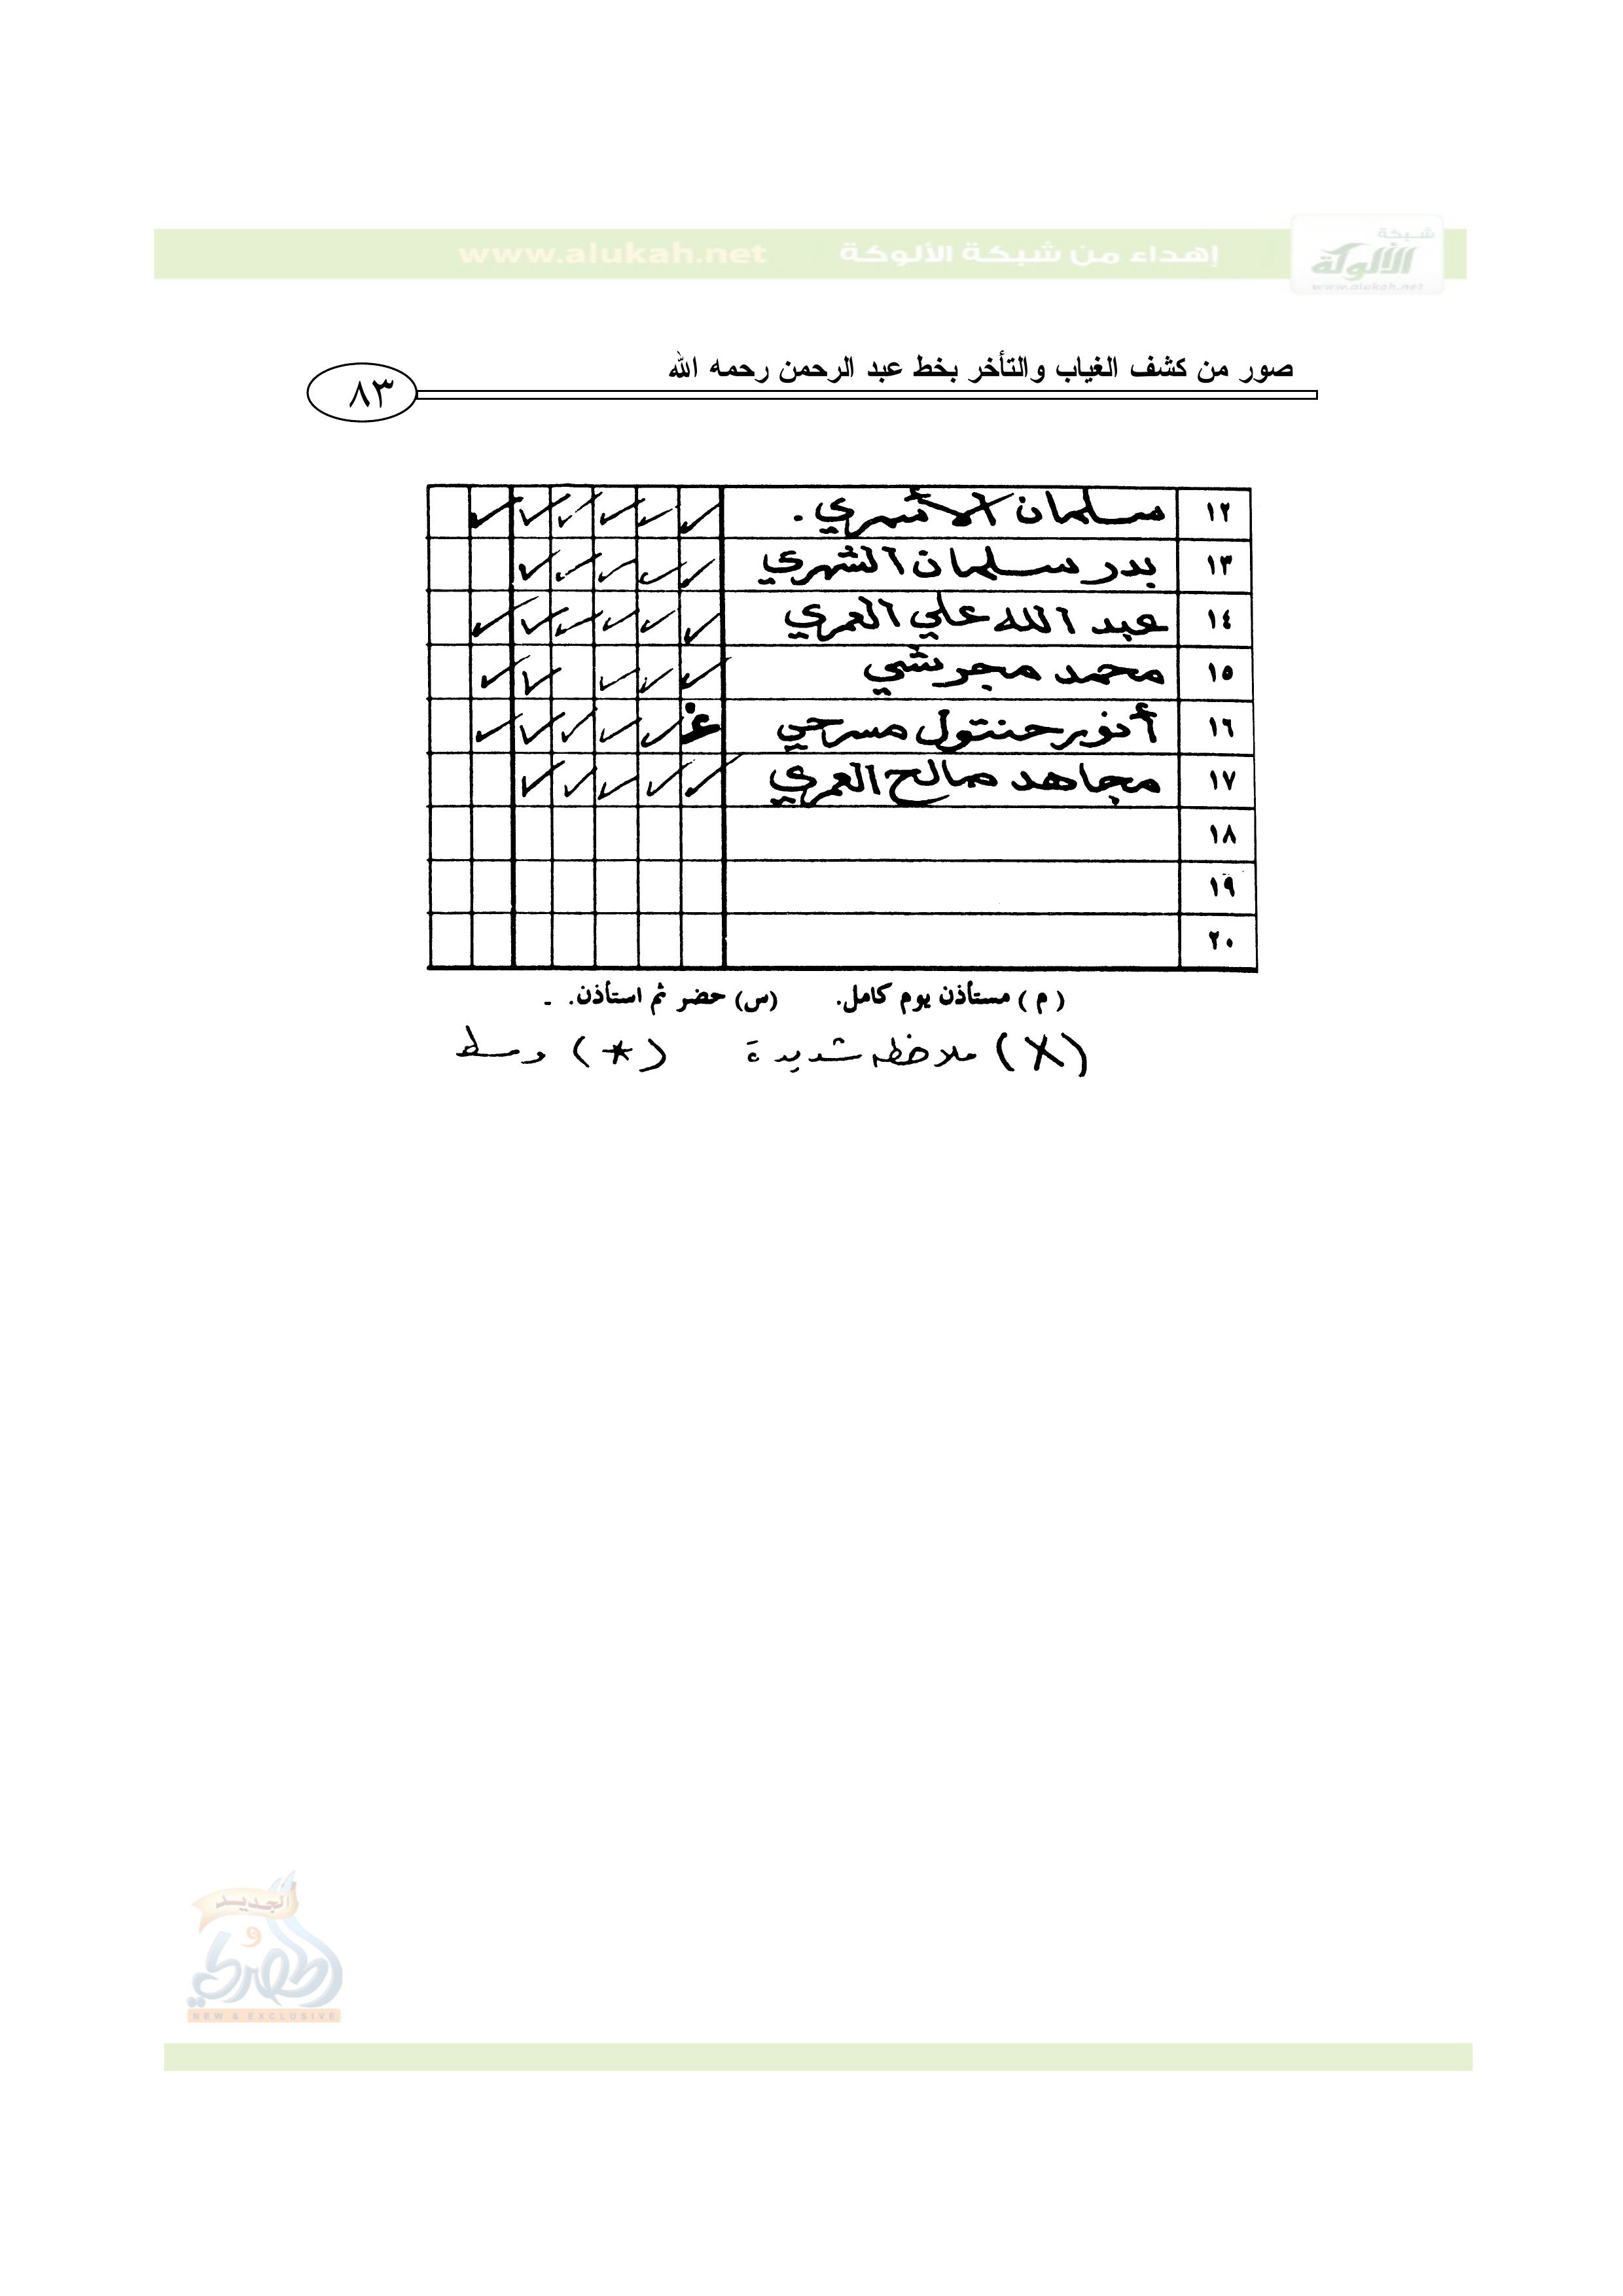 إهداء من شبكة الألوكة www.alukah.net
شبكة
الألوكة
www.alukah.net
صور من كشف الغياب والتأخر بخط عبد الرحمن رحمه الله
٨٣
١٢ سلمان الأشمري . ✓ ✓ ✓ ✓ ✓ ✓
١٣ بدر سلمان الشهري ✓ ✓ ✓ ✓ ✓
١٤ عبد الله علي العمري ✓ ✓ ✓ ✓ ✓ ✓
١٥ محمد مجرشي ✓ ✓ ✓ ✓ ✓
١٦ أنور حنتول مسرحي غ ✓ ✓ ✓ ✓ ✓
١٧ مجاهد صالح العمري ✓ ✓ ✓ ✓ ✓
١٨
١٩
٢٠
( م ) مستأذن يوم كامل. (س) حضر ثم استأذن. -
(X) ملاخظه شديدة (*) وسط
الجديد
و
الحصري
NEW & EXCLUSIVE